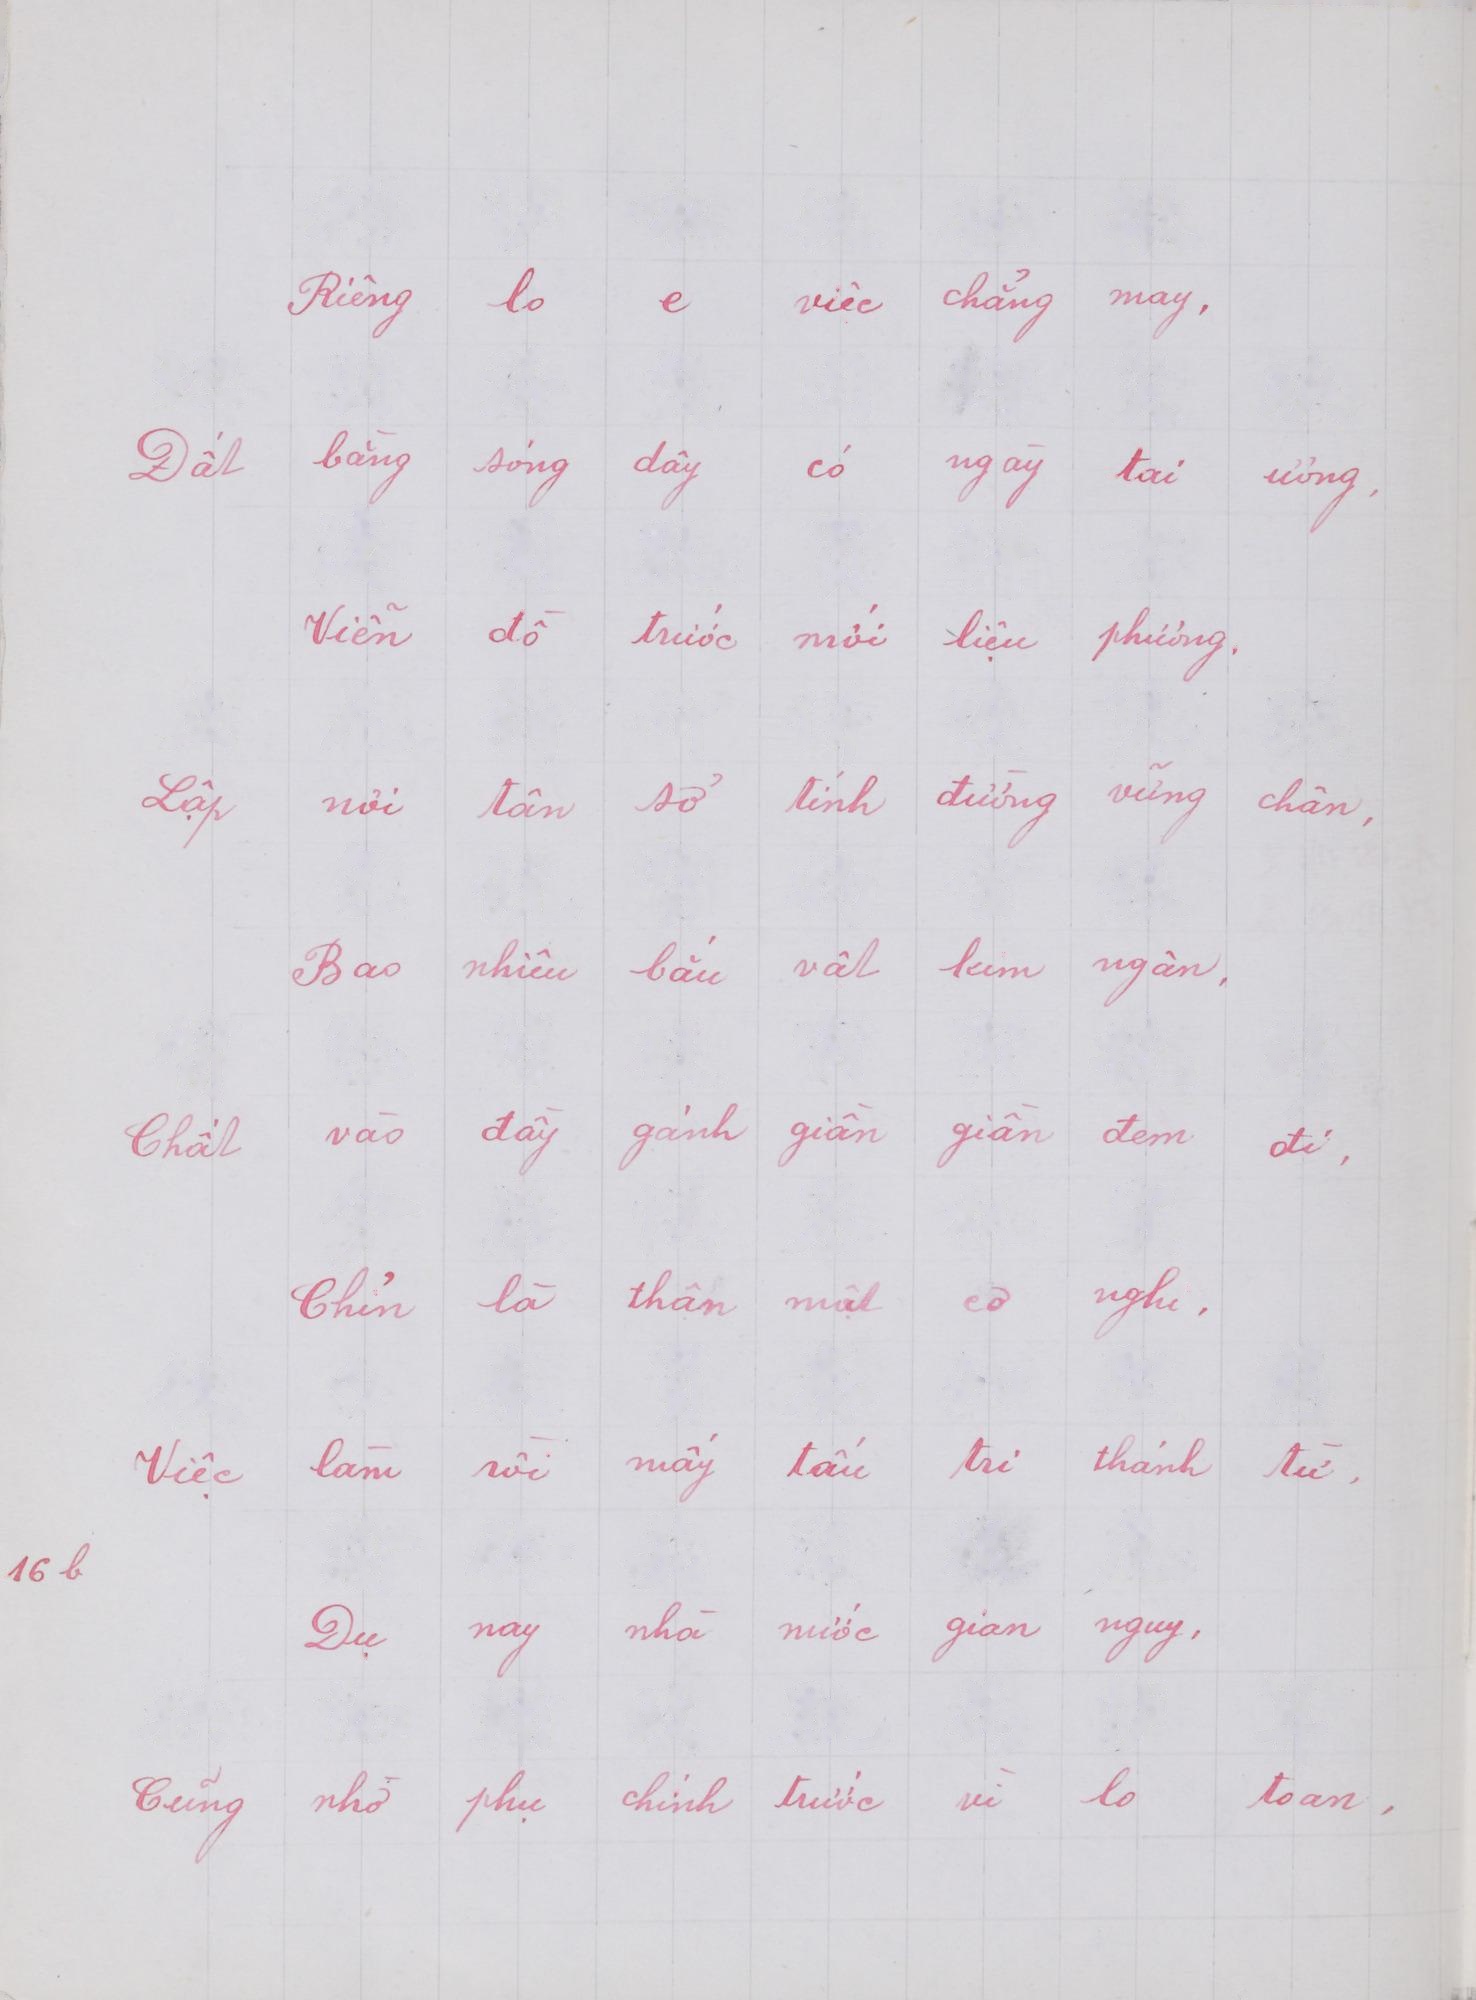 Riêng lo e viêc chẳng may,
Đất bằng sóng dây có ngày tai ương,
Viễn đồ trước mới liệu phương,
Lập nơi tân sở tính đường vững chân,
Bao nhiêu báu vật kim ngân,
Chất vào đầy gánh giần giần đem đi,
Chỉn là thân mật cơ nghi,
Việc làm rồi mấy tấu tri thánh từ,
16 b
Dụ nay nhà nước gian nguy,
Cũng nhờ phụ chính trước vì lo toan,